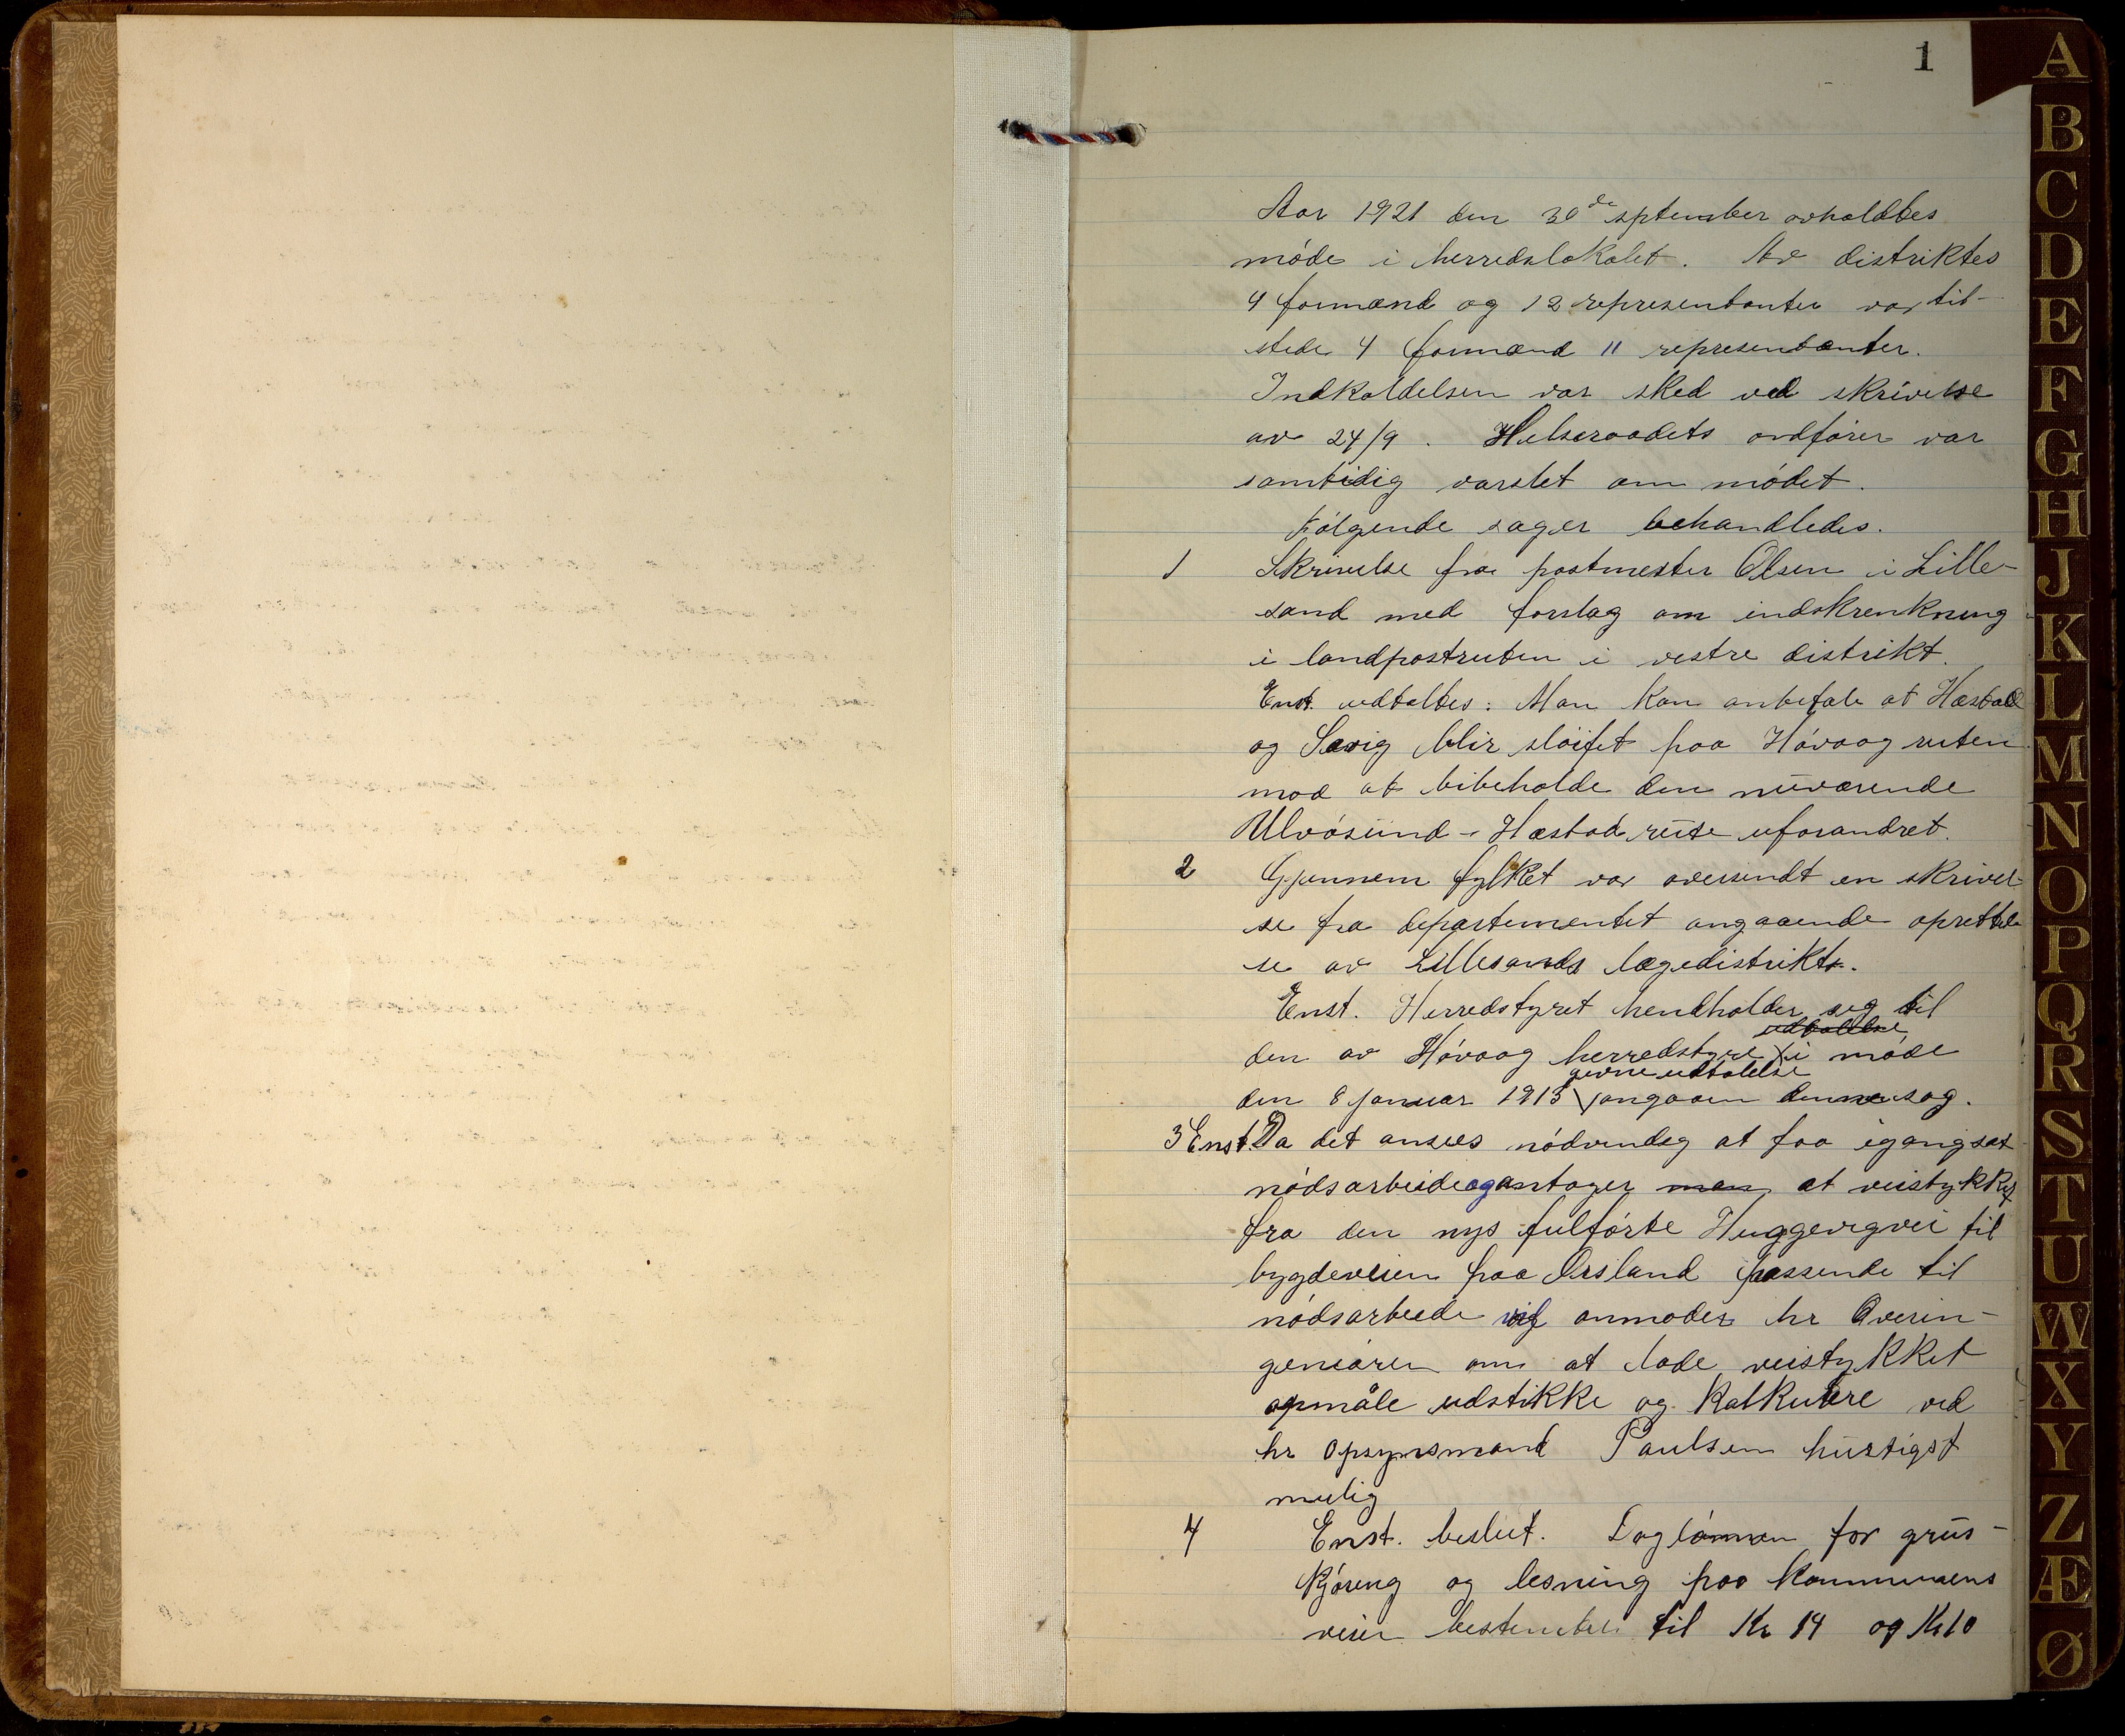 1
Aar 1921 den 30de sptember avholdtes
møde i herredslokalet. Av distriktes
4 formænd og 12 representanter var til-
stede 4 formænd 11 representanter.
Indkaldelsen var sked ved skrivelse
av 24/9. Helseraadets ordfører var
samtidig varslet om mødet.
Følgende sager behandledes.
1 Skrivelse fra postmester Olsen i Lille-
sand med forslag om indskrenkning
i landpostruten i vestre distrikt.
Enst. udtaltes: Man kan anbefale at Hæstad
og Sævig blir sløifet paa Høvaag ruten
mod at bibeholde den nuværende
Ulvøsund - Hæstad rute uforandret.
2 Gjennem fylket var oversendt en skrivel-
se fra departementet angaaende oprettel-
se av Lillesands lægedistrikt.
Enst. Herredstyret henholder seg til
udtalelse
den av Høvaag herredstyre i møde
givne udtalelse
den 8 januar 1913 angaaen denne sag.
3 Enst. Da det ansees nødvendig at faa igangsat
nødsarbeide og antager man at veistykket
fra den nys fulførte Huggevigvei til
bygdeveien paa Østland passende til
nødsarbeide anmodes hr Overin-
geniøren om at lade veistykket
opmåle udstikke og kalkulere ved
hr Opsynsmand Paulsen hurtigst
mulig
4 Enst. beslut. Daglønnen for grus-
kjøring og lesning paa kommunens
veier bestemtes til Kr 14 og Kr 10
A
B
C
D
E
F
G
H
J
K
L
M
N
O
P
Q
R
S
T
U
W
X
Y
Z
Æ
Ø